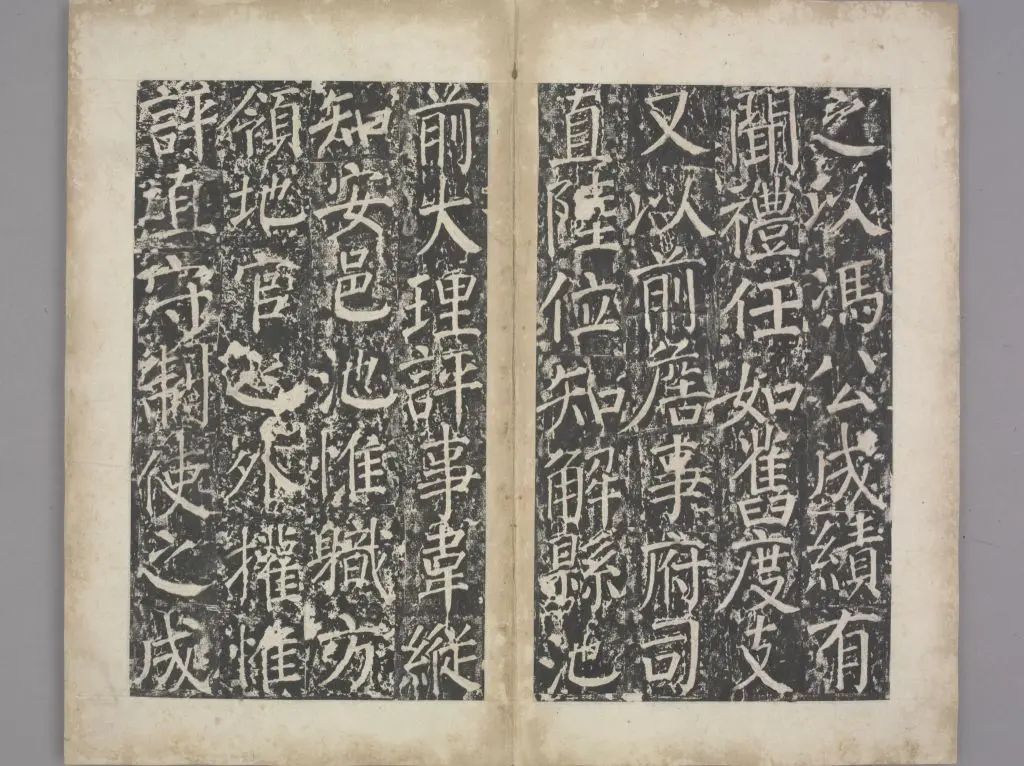 之以馮公成績有
聞禮任如舊度支
又以前詹事府司
直陸位知解縣池
前大理評事韋縱
知安邑池惟職方
領地官之外攉惟
評直守制使之成